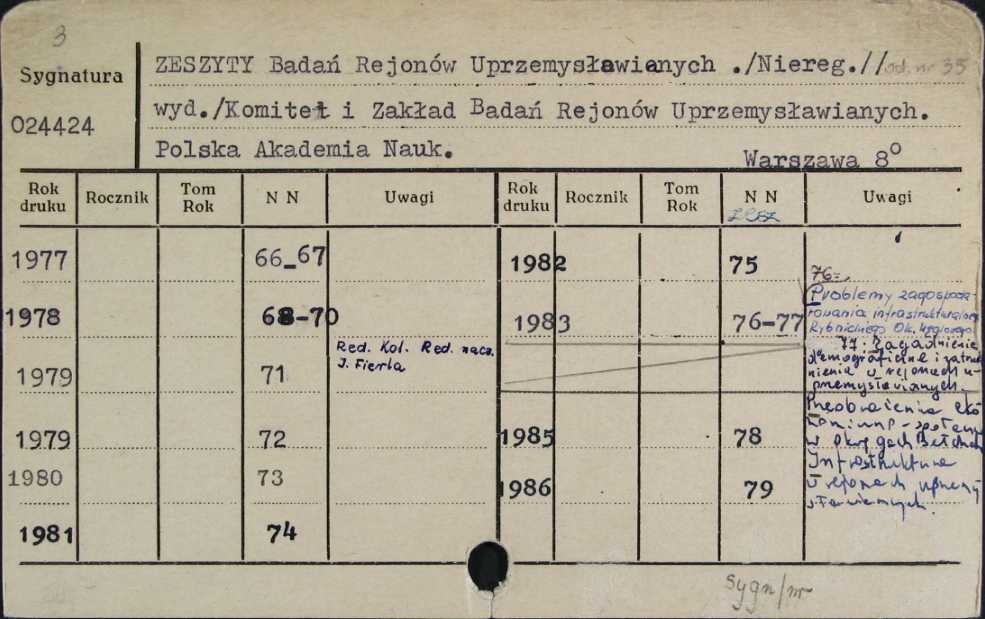 3
Sygnatura
024424
ZESZYTY Badań Rejonów Uprzemysławianych ./Niereg.// od nr 35
wyd./Komitet i Zakład Badań Rejonów Uprzemysławianych.
Polska Akademia Nauk.
Warszawa 8°
Rok druku Rocznik Tom Rok N N Uwagi Rok druku Rocznik Tom Rok N N Uwagi
zesz
1977 66-67
1978 68-70
Red. Kol. Red. nacz.
J. Fierla
1979 71
1979 72
1980 73
1981 74
1982 75
1983 76-77
76:
Problemy zagospoda-
rowania infrastrukturalnego
Rybnickiego Ok. Węglowego
77: Zagadnienie
demograficzne i zatrud
nienia w rejonach u-
przemysławianych.
1985 78
Przeobrażenia eko
w okręgach
1986 79
Infrastruktura
w rejonach uprzemy
sławianych.
Sygn/nr